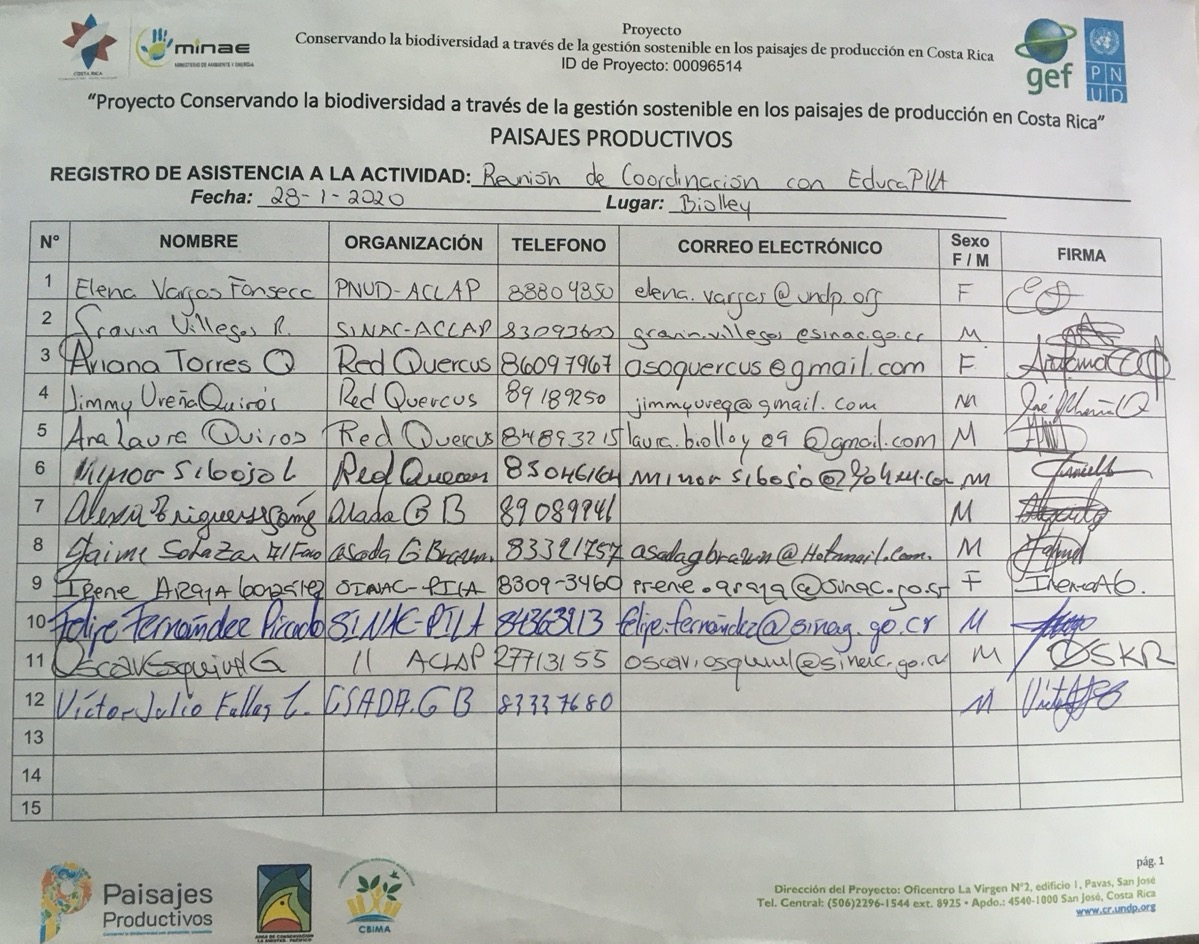 COSTA RICA
minae
MINISTERIO DE AMBIENTE Y ENERGIA
Proyecto
Conservando la biodiversidad a través de la gestión sostenible en los paisajes de producción en Costa Rica
ID de Proyecto: 00096514
gef
PN
UD
"Proyecto Conservando la biodiversidad a través de la gestión sostenible en los paisajes de producción en Costa Rica"
PAISAJES PRODUCTIVOS
REGISTRO DE ASISTENCIA A LA ACTIVIDAD: Reunión de Coordinación con EducaPILA
Fecha: 28-1-2020 Lugar: Biolley
N° NOMBRE ORGANIZACIÓN TELEFONO CORREO ELECTRÓNICO Sexo F / M FIRMA
1 Elena Vargas Fonseca PNUD-ACLAP 88804350 elena.vargas@undp.org F
2 Villegas R. SINAC-ACLAP 83093603 @sinac.go.cr M.
3 Ariana Torres Q Red Quercus 86097967 asoquercus@gmail.com F
4 Jimmy Ureña Quirós Red Quercus 89189250 jimmyureq@gmail.com M
5 Ana Laura Quiros Red Quercus 84893215 laura.biolley09@gmail.com M
6 Minor Sibaja L Red 85046164 M
7 GB 89089941 M
8 Jaime Salazar asada G 83321757 asadagbrawn@Hotmail.com. M
9 Irene Araya González SINAC-PILA 8309-3460 irene.araya@sinac.go.cr F Irene AG.
10 Felipe Fernández Picado SINAC-PILA 84363913 felipe.fernandez@sinag.go.cr M
11 Oscar Esquivel G // ACLAP 27713155 M OSKR
12 Víctor Julio Fallas GB 83337680 M
13
14
15
Paisajes
Productivos
CBIMA
pág. 1
Dirección del Proyecto: Oficentro La Virgen N°2, edificio 1, Pavas, San José
Tel. Central: (506)2296-1544 ext. 8925 • Apdo.: 4540-1000 San José, Costa Rica
www.cr.undp.org